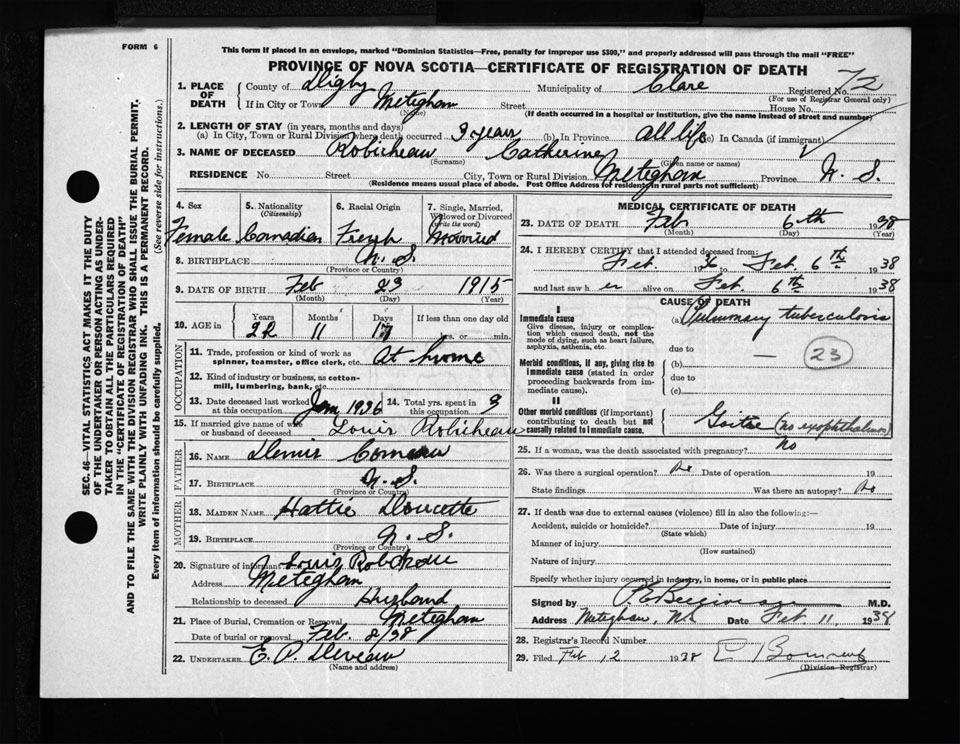 FORM 6
This form if placed in an envelope, marked "Dominion Statistics—Free, penalty for improper use $300," and properly addressed will pass through the mail "FREE"
PROVINCE OF NOVA SCOTIA—CERTIFICATE OF REGISTRATION OF DEATH
1. PLACE OF DEATH
County of Digby Municipality of Clare Registered No. 72
(For use of Registrar General only)
If in City or Town Meteghan Street House No.
(Name) (If death occurred in a hospital or institution, give the name instead of street and number)
2. LENGTH OF STAY (in years, months and days)
(a) In City, Town or Rural Division where death occurred 3 years (b) In Province all life (c) In Canada (if immigrant)
3. NAME OF DECEASED Robicheau Catherine
(Surname) (Given name or names)
RESIDENCE No. Street City, Town or Rural Division Meteghan Province N. S.
(Residence means usual place of abode. Post Office Address for residents in rural parts not sufficient)
4. Sex Female
5. Nationality (Citizenship) Canadian
6. Racial Origin French
7. Single, Married, Widowed or Divorced (write the word) Married
8. BIRTHPLACE N. S.
(Province or Country)
9. DATE OF BIRTH Feb 23 1915
(Month) (Day) (Year)
10. AGE in Years Months Days If less than one day old
22 11 17 hrs. or min.
OCCUPATION
11. Trade, profession or kind of work as spinner, teamster, office clerk, etc. At home
12. Kind of industry or business, as cotton-mill, lumbering, bank, etc.
13. Date deceased last worked at this occupation Jan 1936
14. Total yrs. spent in this occupation 3
15. If married give name of wife or husband of deceased Louis Robicheau
FATHER
16. NAME Dennis Comeau
17. BIRTHPLACE N. S.
(Province or Country)
MOTHER
18. MAIDEN NAME Hattie Doucette
19. BIRTHPLACE N. S.
(Province or Country)
20. Signature of informant Louis Robicheau
Address Meteghan
Relationship to deceased Husband
21. Place of Burial, Cremation or Removal Meteghan
Date of burial or removal Feb. 8/38
22. UNDERTAKER E. P. Deveau
(Name and address)
MEDICAL CERTIFICATE OF DEATH
23. DATE OF DEATH Feb. 6th 1938
(Month) (Day) (Year)
24. I HEREBY CERTIFY that I attended deceased from:
Feb. 1936 to Feb. 6th 1938
and last saw her alive on Feb. 6th 1938
CAUSE OF DEATH
I
Immediate cause
Give disease, injury or complication which caused death, not the mode of dying, such as heart failure, asphyxia, asthenia, etc.
(a) Pulmonary tuberculosis
due to
23
Morbid conditions, if any, giving rise to immediate cause (stated in order proceeding backwards from immediate cause).
(b)
due to
(c)
II
Other morbid conditions (if important) contributing to death but not causally related to immediate cause.
Goitre (no exophthalmos)
25. If a woman, was the death associated with pregnancy? No
26. Was there a surgical operation? No Date of operation 19
State findings Was there an autopsy? No
27. If death was due to external causes (violence) fill in also the following:—
Accident, suicide or homicide? Date of injury 19
(State which)
Manner of injury
(How sustained)
Nature of injury
Specify whether injury occurred in industry, in home, or in public place
Signed by M.D.
Address Meteghan, N.S. Date Feb 11, 1938
28. Registrar's Record Number
29. Filed Feb 12 1938
(Division Registrar)
SEC. 46—VITAL STATISTICS ACT MAKES IT THE DUTY
OF THE UNDERTAKER OR PERSON ACTING AS UNDER-
TAKER TO OBTAIN ALL THE PARTICULARS REQUIRED
IN THE "CERTIFICATE OF REGISTRATION OF DEATH"
AND TO FILE THE SAME WITH THE DIVISION REGISTRAR WHO SHALL ISSUE THE BURIAL PERMIT.
WRITE PLAINLY WITH UNFADING INK. THIS IS A PERMANENT RECORD.
Every item of information should be carefully supplied. (See reverse side for instructions.)